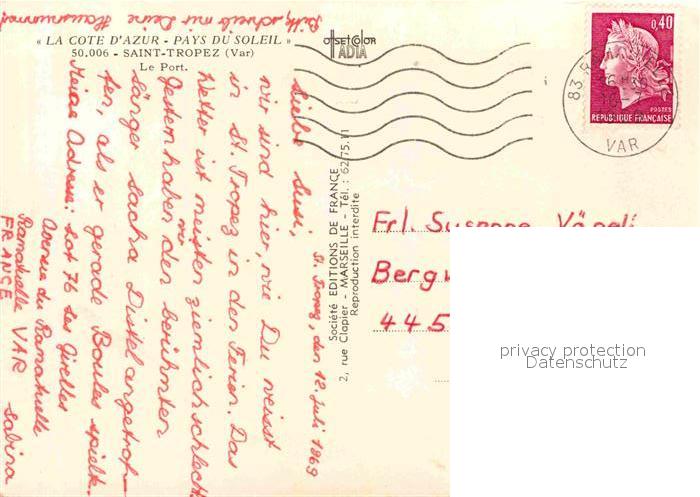 Bitte, schreib mir Deine
Hausnummer!
« LA COTE D'AZUR - PAYS DU SOLEIL »
50.006 - SAINT-TROPEZ (Var)
Le Port.
OFFSETCOLOR
IADIA
0,40
POSTES
REPUBLIQUE FRANÇAISE
83 RAMATUELLE
VAR
St. Tropez, den 12. Juli 1969
Liebe Susi,
wir sind hier, wie Du weisst
in St. Tropez in den Ferien. Das
Wetter ist meisten ziemlich schlecht.
Gestern haben wir den berühmten
Sänger Sacha Distel angetrof-
fen, als er gerade Boules spielte.
Meine Adresse: Lot 76 les
Avenue du Ramatuelle
Ramatuelle VAR
FRANCE
Sabina
Société EDITIONS DE FRANCE
2, rue Clapier - MARSEILLE - Tél. : 62.75.11
Reproduction interdite
Frl. Susanne Vögeli
Berg
445
privacy protection
Datenschutz